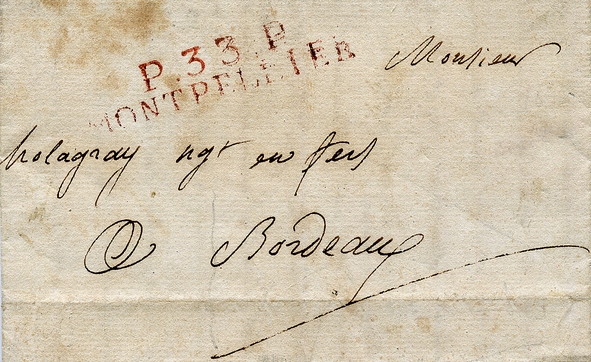 P.33.P
MONTPELLIER
Monsieur
ngt en fers
A Bordeaux